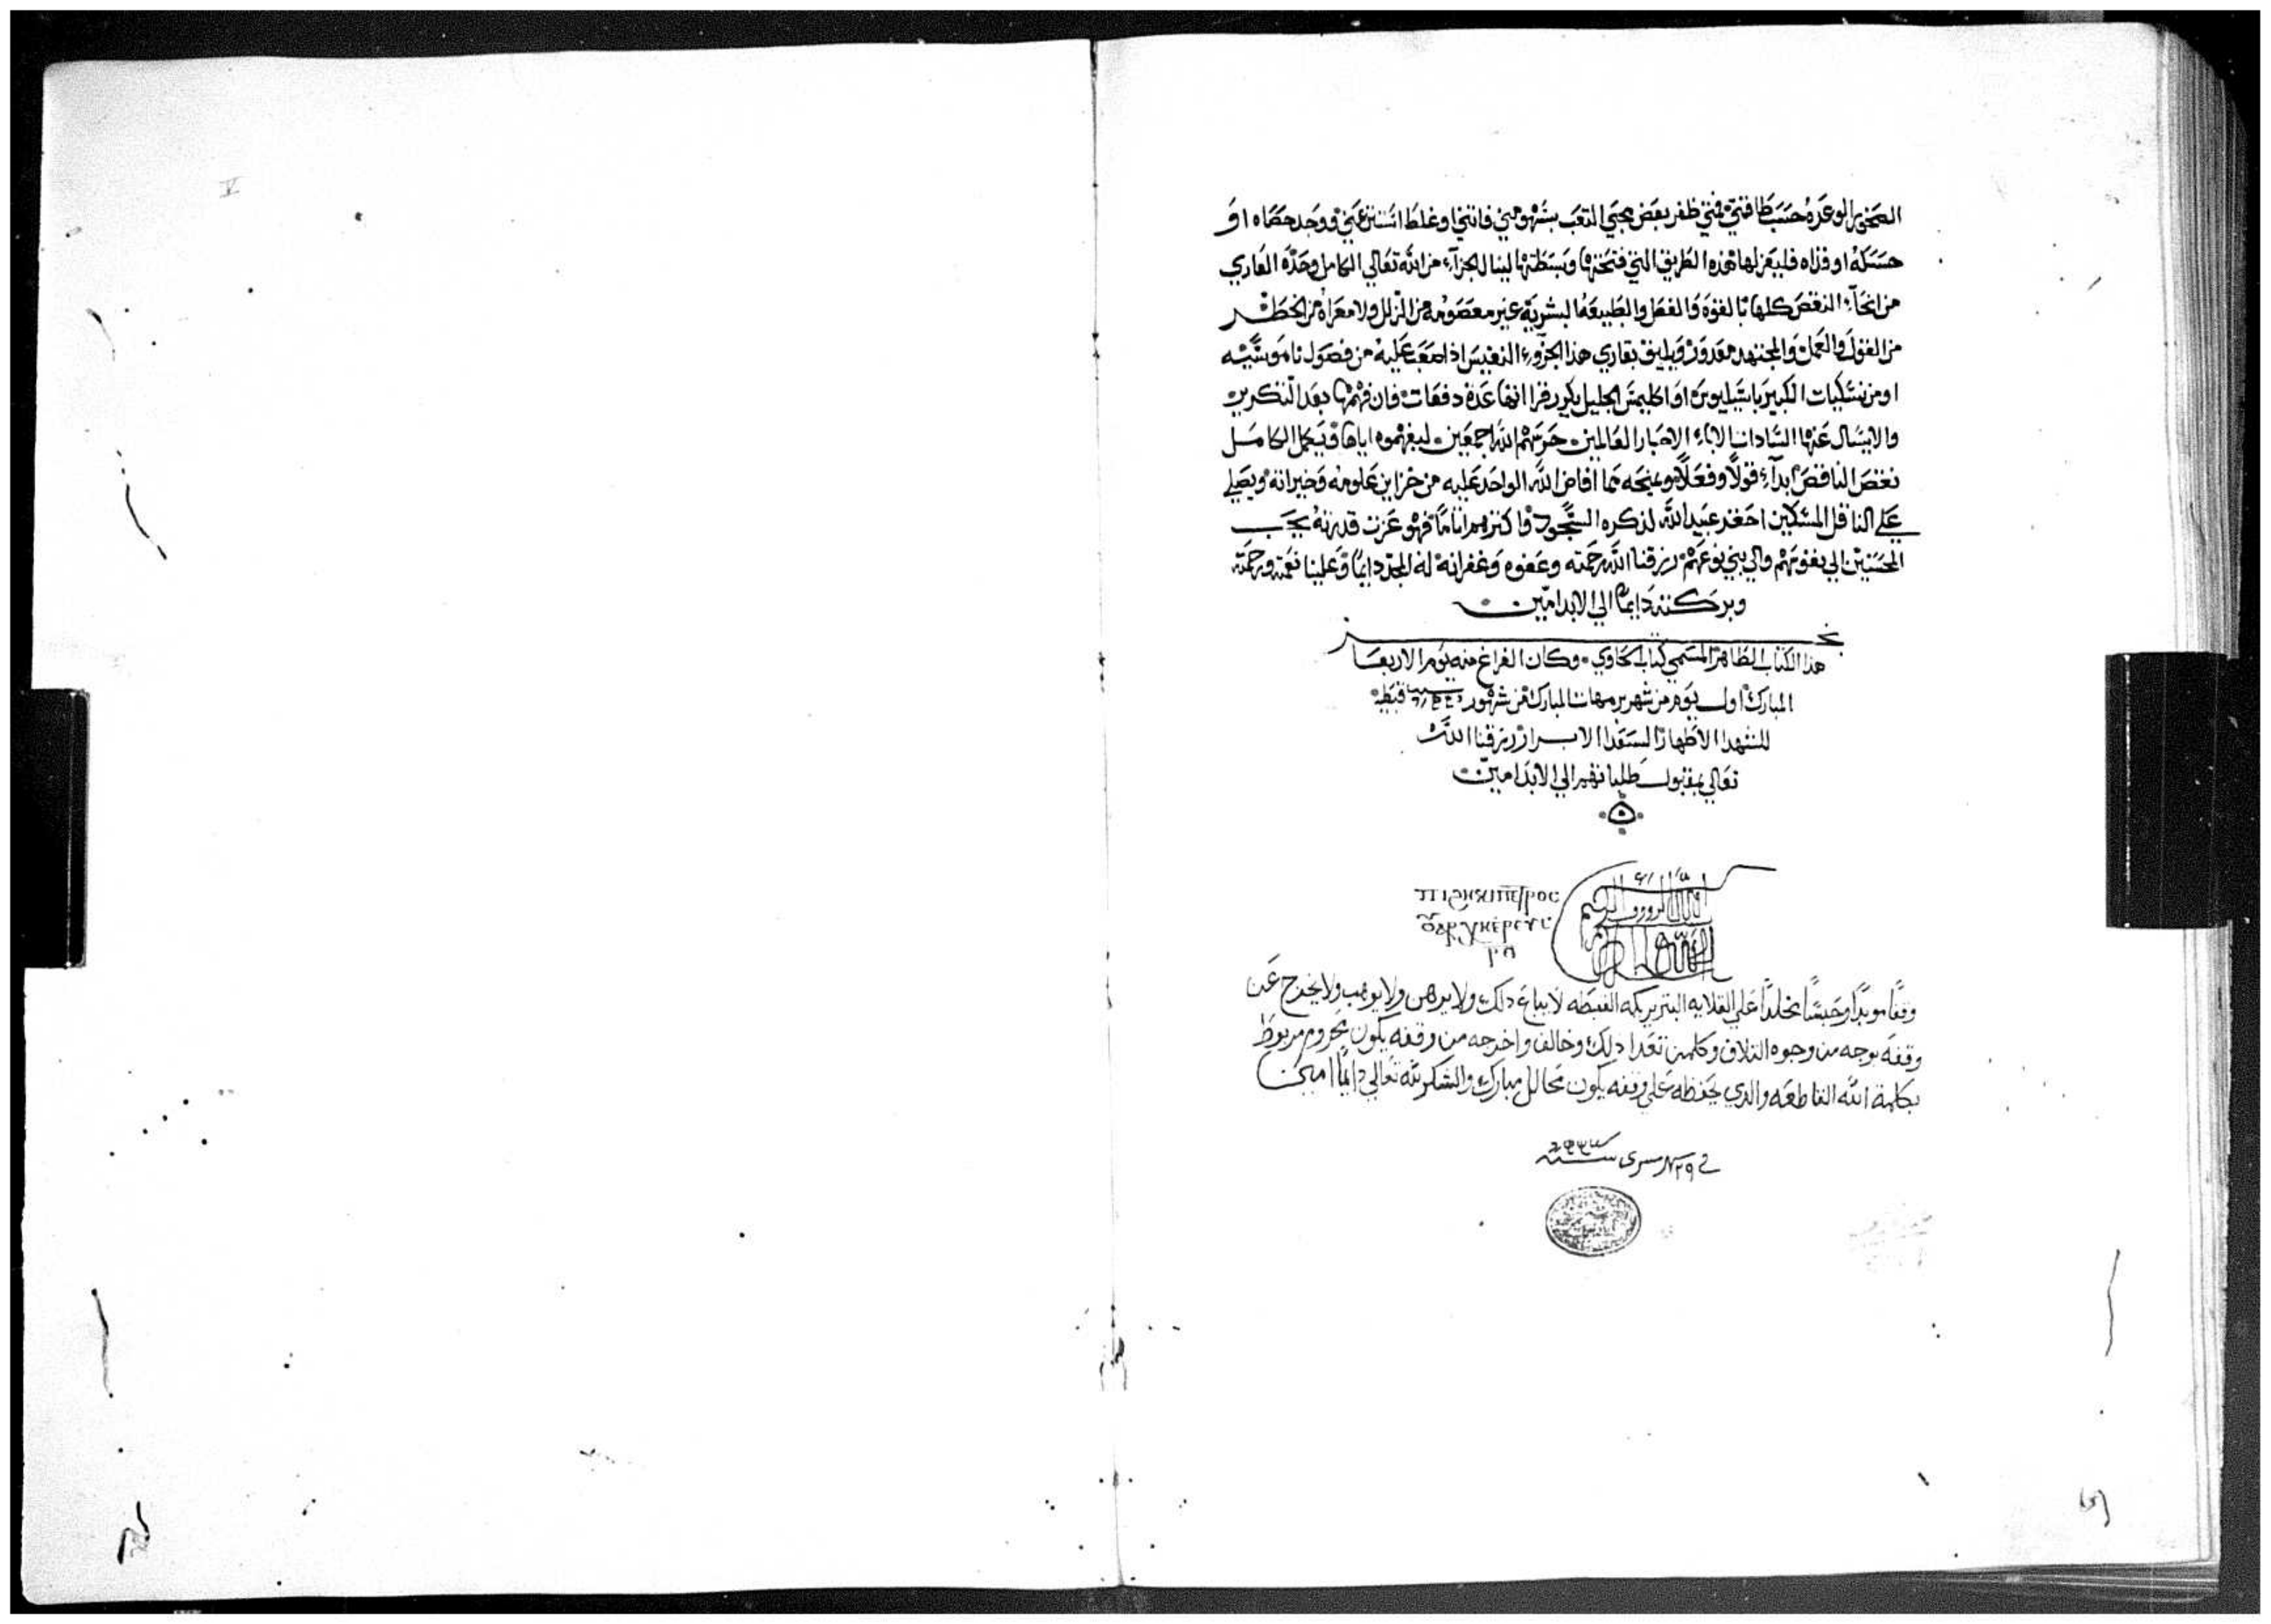 الصخور الوعره حسب طاقتي فمتي ظفر بعض محبي التعب بشهو مني فاتني او غلط انستر عني ووجد حصاه او
حسكه او قذاه فليعزلها هذه الطريق التي فتحتها وبسطتها لينال الجزآء من الله تعالي الكامل وحده العاري
من انحآء النقص كلها بالقوة والفعل والطبيعه البشريه غير معصومه من الزلل ولا معراه من الخطر
من القول والعمل والمجتهد معدور ويليق بقاري هذا الجزوء النفيس اذا صعب عليه من فصول ناموسيه
او من الكبير باسيليوس او اكليمس الجليل يكرر قراانها عدة دفعات فان فهمها بعد التكرير
والا يسال عنها السادات الاباء الاحبار العالمين حرسهم الله اجمعين ليفهموه اياها فيكمل الكامل
نقص الناقص ابدآء قولاً وفعلاً ويمنحه مما افاض الله الواحد عليه من خزاين علومه وخيراته ويصلي
علي الناقل المسكين احقر عبيد الله لذكره السجود فهو عزت قدرته يحب
المحسنين الي نفوسهم والي بني نوعهم رزقنا الله رحمته وعفوه وغفرانه له المجد دايماً وعلينا نعمته ورحمته
وبركته دايماً الي الابد امين
نجز
هذا الكتاب الطاهر المسمي كتاب الحاوي وكان الفراغ منه يوم الاربعا
المبارك اول يوم من شهر برمهات المبارك من شهور سنة قبطيه
للشهدا الاطهار السعدا الابرار رزقنا الله
تعالي بمقبول طلباتهم الي الابد امين
وقفاً موبداً وحبساً مخلداً علي القلايه البتريركيه القبطه لا يباع دلك ولا يرهن ولا يوهب ولا يخرج عن
وقفه بوجه من وجوه التلاف وكلمن تعدا دلك وخالف واخرجه من وقفه يكون محروم مربوط
بكلمة الله القاطعه والدي يحفظه علي وقفه يكون محالل مبارك والشكر لله تعالي دايماً امين
في ٢٩ مسرى سنة